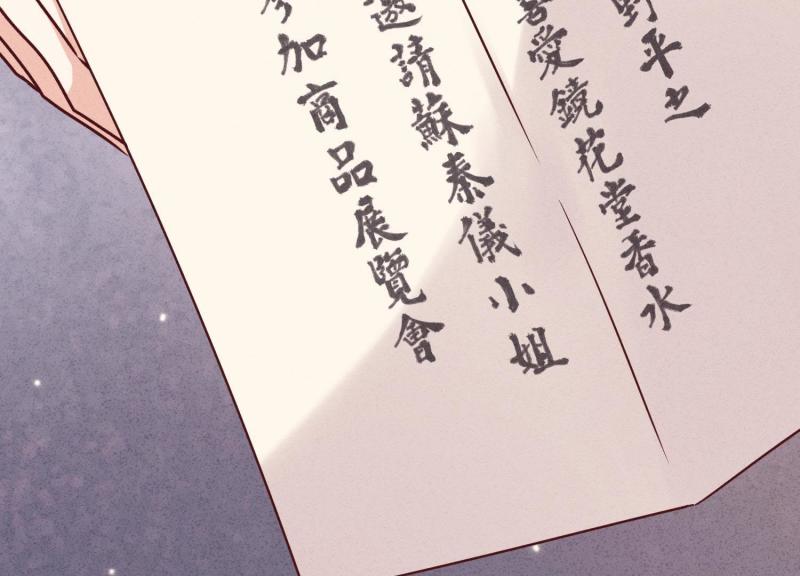 野平之
喜愛鏡花堂香水
邀請蘇秦儀小姐
參加商品展覽會